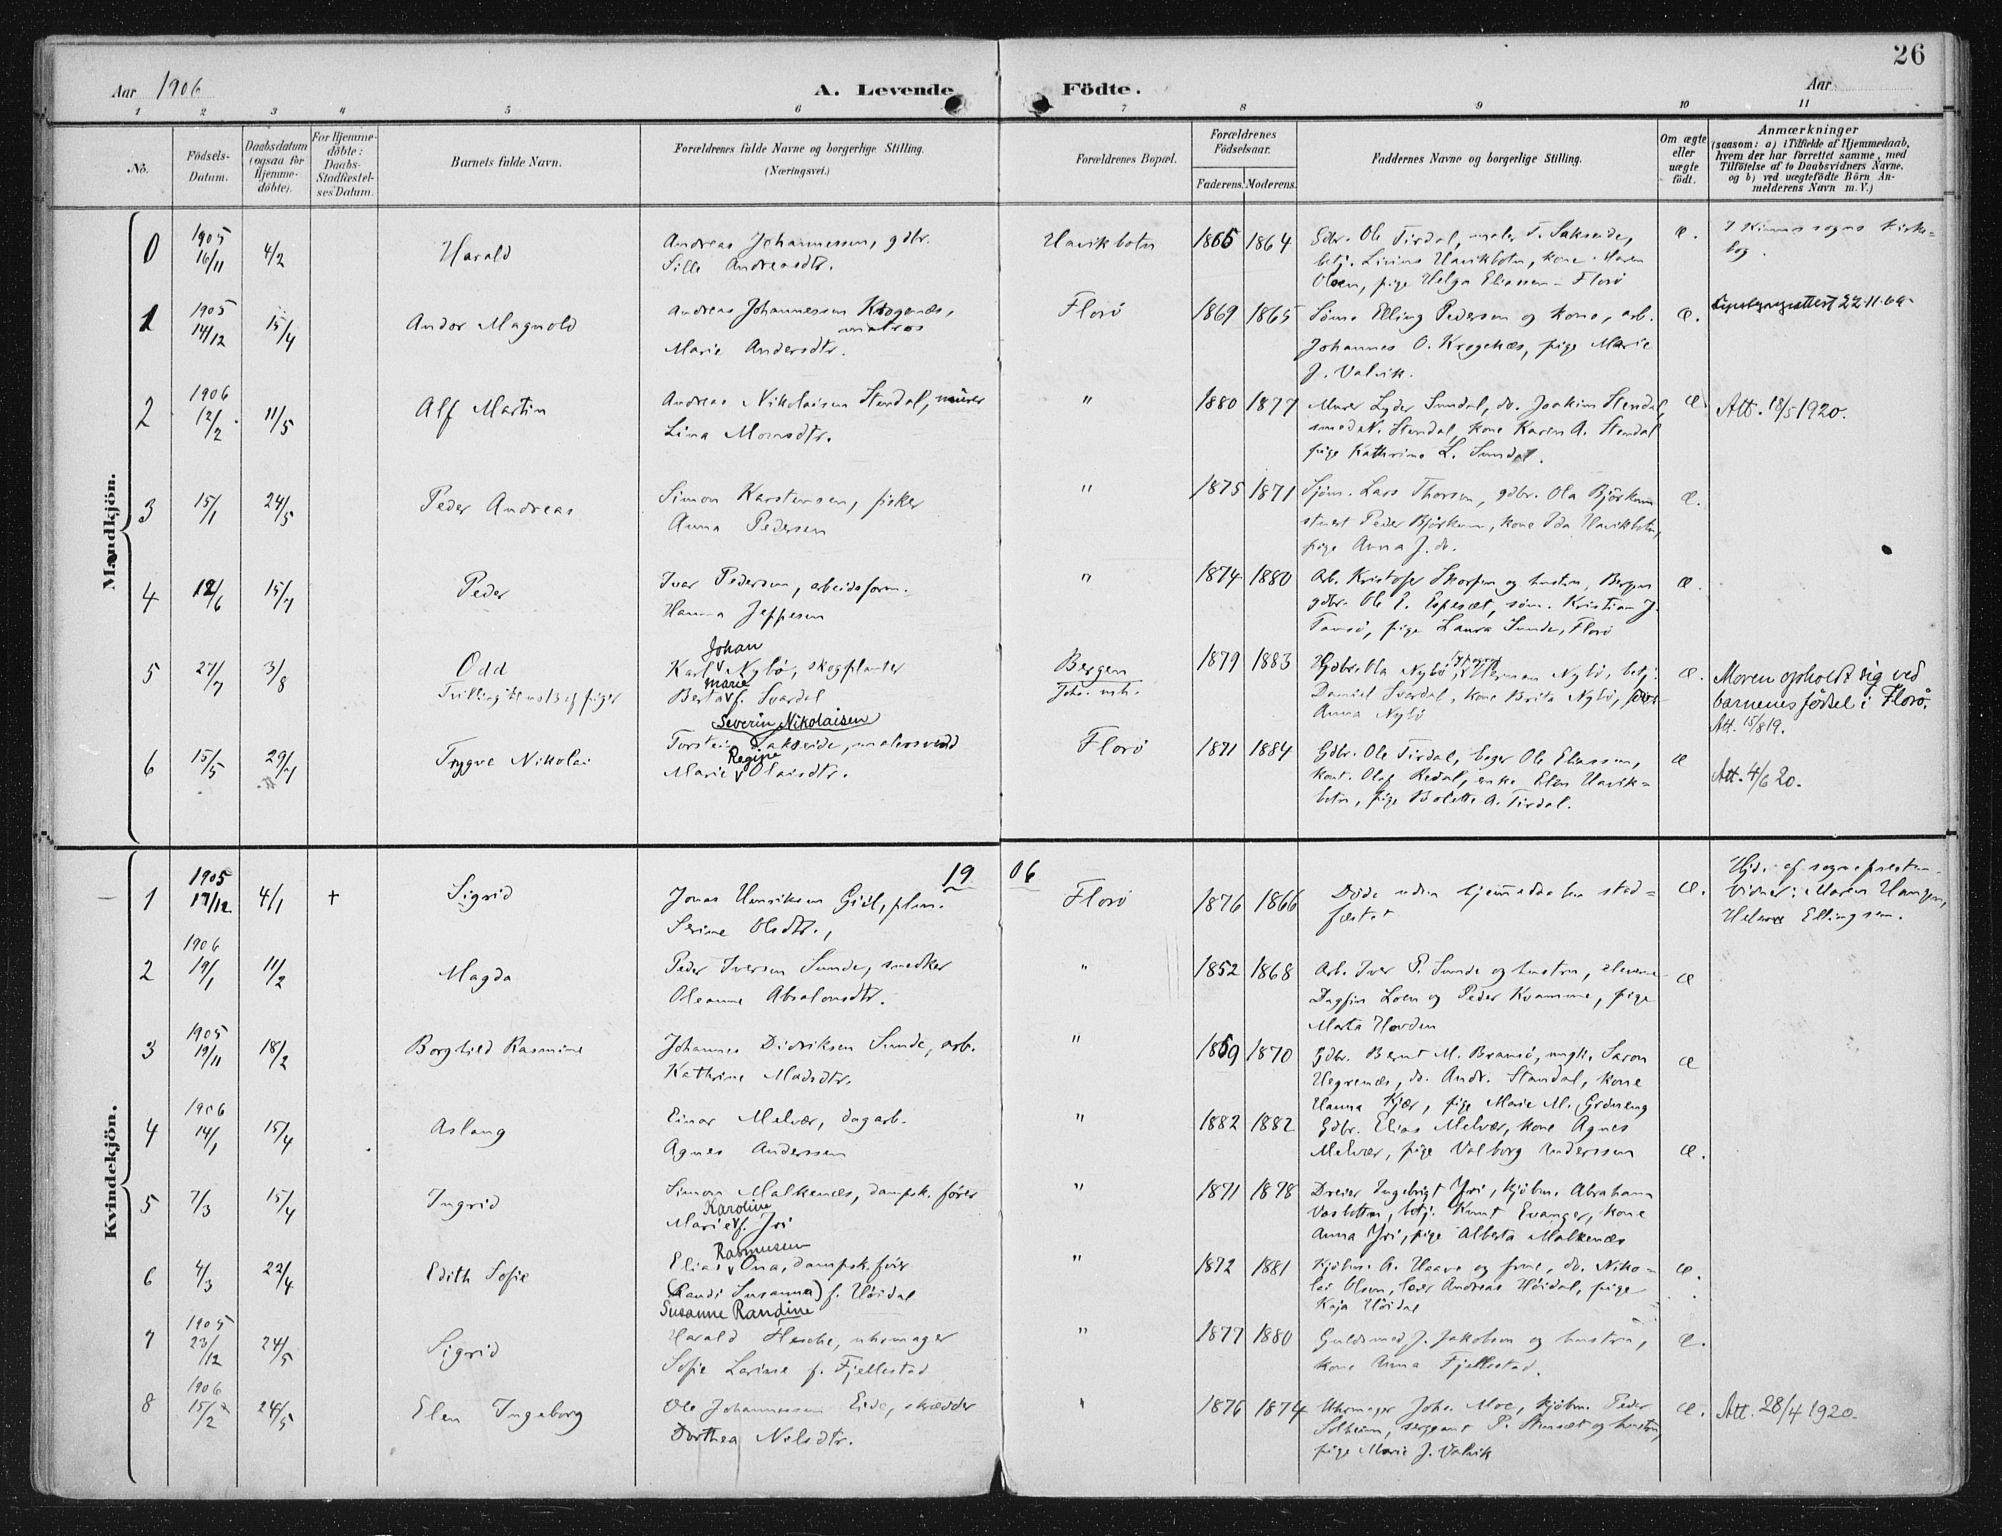 26
Aar 1906
A. Levende
Födte.
Aar
1 2 3 4 5 6 7 8 9 10 11
No.
Födsels-
Datum.
Daabsdatum
(ogsaa for
Hjemme-
döbte).
For Hjemme-
döbte:
Daabs-
Stadfæstel-
ses Datum.
Barnets fulde Navn.
Forældrenes fulde Navne og borgerlige Stilling.
(Næringsvei.)
Forældrenes Bopæl.
Forældrenes
Födselsaar.
Faderens. Moderens.
Faddernes Navne og borgerlige Stilling.
Om ægte
eller
uægte
födt.
Anmærkninger
(saasom: a) i Tilfælde af Hjemmedaab,
hvem der har forrettet samme, med
Tilföielse af to Daabsvidners Navne,
og b) ved uægtefödte Börn An-
melderens Navn m. V.)
Mandkjön.
0 1905 16/11 4/2 Harald
Andreas Johannessen, gdbr.
Sille Andreasdtr.
Havikbotn 1865 1864
Gdbr. Ole Tirdal, maler T. Sakseide,
betj. Havikbotn, kone Maren
Olsen, pige Helga Eliassen Florö
æ. I Kinns sogns kirke=
bog.
1 1905 14/12 15/4 Andor Magnold
Andreas Johannessen Krognæs,
matros
Marie Andersdtr.
Florö 1869 1865
Elling Pedersen og kone, arb.
Johannes O. Krognæs, pige Marie
J. Valvik.
æ. 22-11-60
2 1906 12/2 11/5 Alf Martin
Andreas Nikolaisen Stendal, murer
Lina Monsdtr.
" 1880 1877
Murer Lyder Sundal, do. Joakim Stendal,
smed N. Stendal, kone Karen A. Stendal
pige Kathrine L. Sundal.
æ. Att. 18/5 1920.
3 15/1 24/5 Peder Andreas
Simon Karstensen, fisker
Anna Pedersen
" 1875 1871
Sjöm. Lars Thorsen, gdbr. Ola Björkum
Peder Björkum, kone Ida Havikbotn,
pige Anna J. do.
æ.
4 12/6 15/7 Peder
Ivar Pedersen, arbeidsform.
Hanna Jeppesen
" 1874 1880
Arb. Kristofer Skorpen og hustru, Bergen
gdbr. Ole E. Espeset, söm. Kristian J.
Tansö, pige Laura Sunde, Florö
æ.
5 27/7 3/8 Odd
Johan
Karl Nybö, skogplanter
Tvilling
marie
Berta f. Svardal
Bergen
1879 1883
Gdbr. Ola Nybö, Herman Nybö, betj.
Daniel Svardal, kone Brita Nybö,
Anna Nybö
æ. Moren opholdt sig ved
barnenes födsel i Florö.
Att. 15/8 19.
6 15/5 29/7 Trygve Nikolai
Severin Nikolaisen
Torstein Sakseide, malersvend
Regine
Marie Olaisdtr.
Florö 1871 1884
Gdbr. Ole Tirdal, bager Ole Eliassen,
kont. Olaf Redal, enke Elen Havik=
botn, pige Bolette A. Tirdal.
æ Att. 4/6 20.
Kvindekjön.
19 06
1 1905 17/12 4/1 + Sigrid
Jonas Henriksen Giöl,
Serine Olsdtr.,
Florö 1876 1866
Döde uden hjemmedaaben stad=
fæstet
æ. Hjd. af sognepresten.
Vidner: Maren Hansen,
Helene Ellingsen.
2 1906 19/1 11/2 Magda
Peder Iversen Sunde, snedker
Oleanne Absalonsdtr.
" 1852 1868
Arb. Iver P. Sunde og hustru, eleverne
Dagfin Loen og Peder Kvamme, pige
Marta Hovden
æ
3 1905 19/11 18/2 Borghild Rasmine
Johannes Didriksen Sunde, arb.
Kathrine Madsdtr.
" 1869 1870
Gdbr. Bernt M. Bransö, ungk. Saron
Hegrenæs, do. Andr. Standal, kone
Hanna Kjær, pige Marie M. Gröneng
æ
4 1906 14/1 15/4 Aslaug
Einar Melvær, dagarb.
Agnes Anderssen
" 1882 1882
Gdbr. Elias Melvær, kone Agnes
Melvær, pige Valborg Anderssen
æ.
5 7/3 15/4 Ingrid
Simon Malkenæs, dampsk. förer
Karoline
Marie f. Yri
" 1871 1878
Dreier Ingebrigt Yri, kjöbm. Abraham
Vasbotten, betj. Knut Evanger, kone
Anna Yri, pige Alberta Malkenæs
6 4/3 22/4 Edith Sofie
Rasmusen
Elias Ona, dampsk. förer
(Randi Susanna) f. Höidal
Susanne Randine
" 1872 1881
Kjöbm. A. Haave og frue, do. Niko=
lai Olsen, lærer Andreas Höidal, pige
Kaja Höidal
æ.
7 1905 23/12 24/5 Sigrid
Harald Hesche, uhrmager
Sofie Larine f. Fjellestad
" 1877 1880
Guldsmed J. Jakobsen og hustru,
kone Anna Fjellestad.
æ.
8 1906 15/2 24/5 Elen Ingeborg
Ole Johannessen Eide, skrædder
Dorthea Nilsdtr.
" 1876 1874
Uhrmager Johs. Moe, kjöbm. Peder
Solheim, sergeant P. Stenset og hustru,
pige Marie J. Valvik
æ. Att. 28/4 1920.